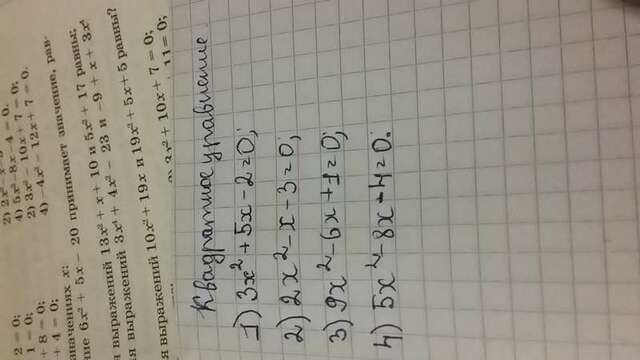 2) 2x² − x − 3
2 = 0;
4) 5x² − 8x − 4 = 0.
1 = 0;
2) 3x² − 10x + 7 = 0;
+ 8 = 0;
4) −4x² − 12x + 7 = 0.
+ 4 = 0;
значениях x:
ние 6x² + 5x − 20 принимает значение, рав-
я выражений 13x² + x + 10 и 5x² + 17 равны;
ия выражений 3x⁴ + 4x² − 23 и −9 + x + 3x⁴
я выражений 10x² + 19x и 19x² + 5x + 5 равны?
2) 3x² + 10x + 7 = 0;
11 = 0;
Квадратное уравнение
1) 3x² + 5x − 2 = 0;
2) 2x² − x − 3 = 0;
3) 9x² − 6x + 1 = 0;
4) 5x² − 8x − 4 = 0.